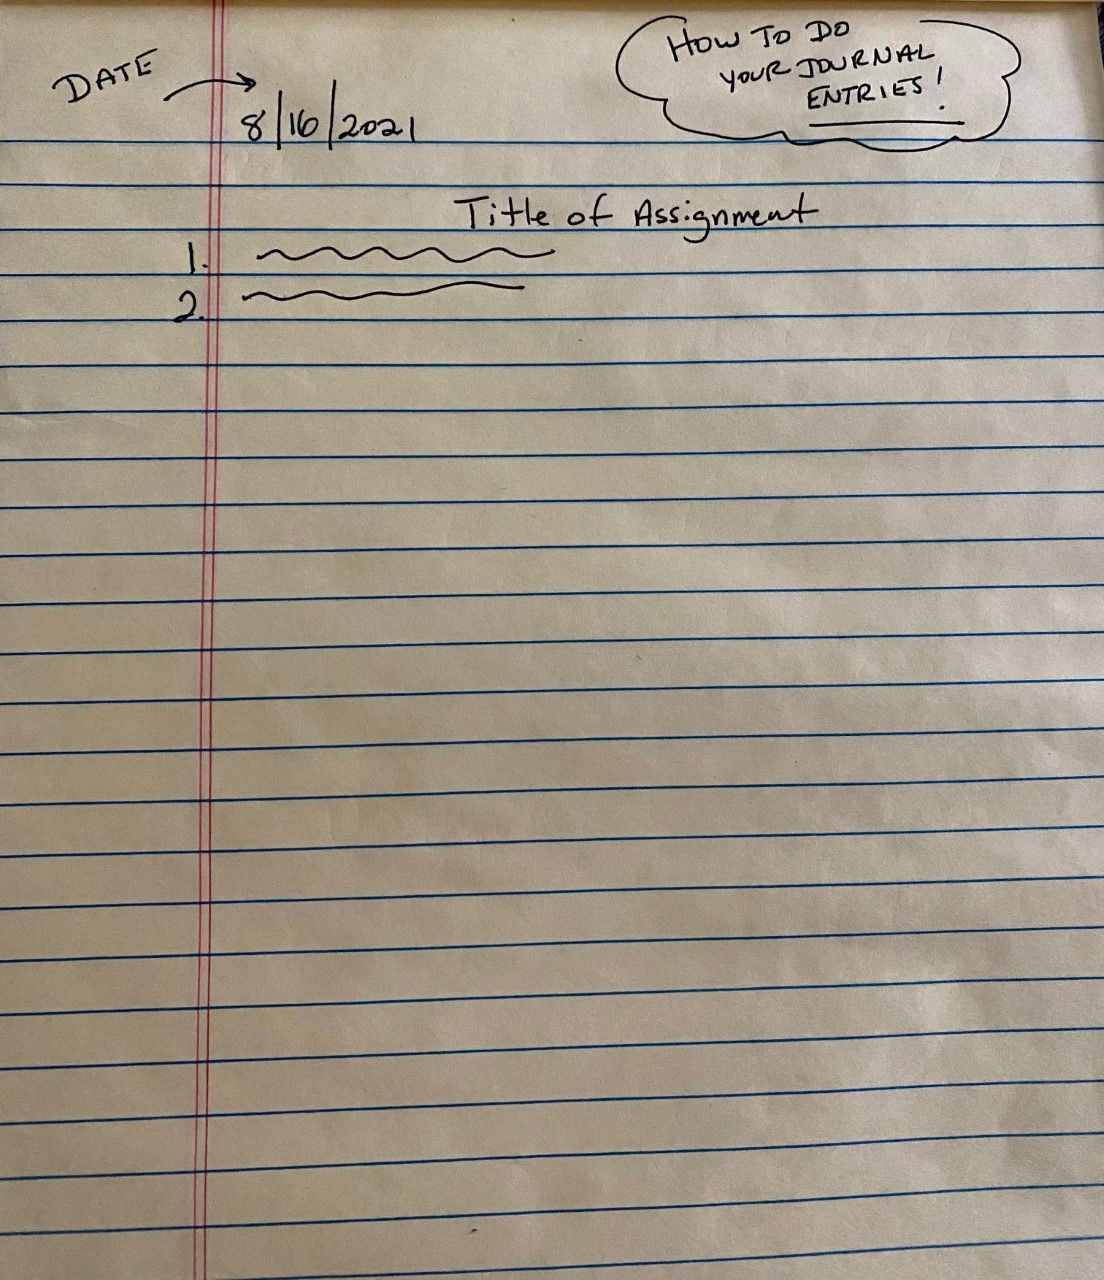 DATE
8/16/2021
HOW TO DO
YOUR JOURNAL
ENTRIES!
Title of Assignment
1.
2.